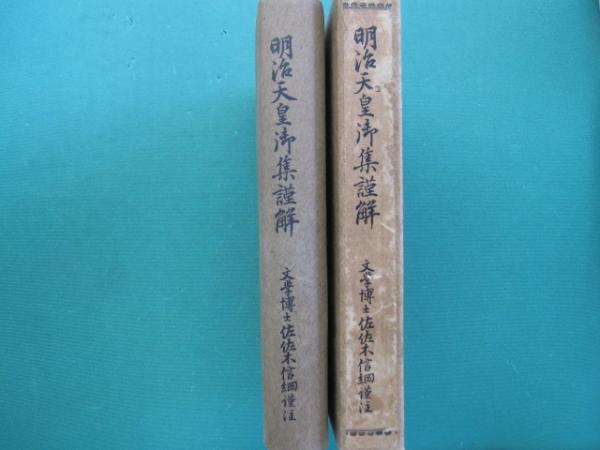 明治天皇御集謹解
文學博士佐佐木信綱謹注
明治天皇御集謹解
文學博士佐佐木信綱謹注